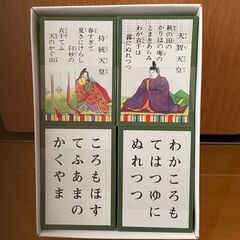 天智天皇
秋の田の
かりほの庵の
とまをあらみ
わが衣手は
露にぬれつつ
持統天皇
春すぎて
夏きにけらし
白妙の
衣ほすてふ
天のかぐ山
わかころも
てはつゆに
ぬれつつ
ころもほす
てふあまの
かくやま